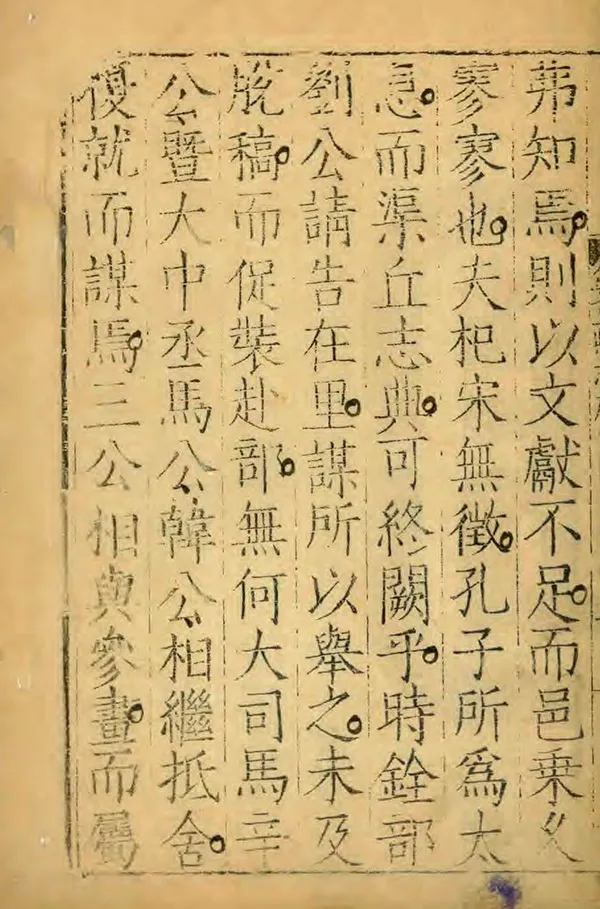 茀知焉則以文獻不足而邑乗久
寥寥也夫杞宋無徵孔子所爲太
息而渠丘志典可終闕乎時銓部
劉公請告在里謀所以舉之未及
脫稿而促裝赴部無何大司馬辛
公暨大中丞馬公韓公相繼抵舍
復就而謀焉三公相與參畫而屬